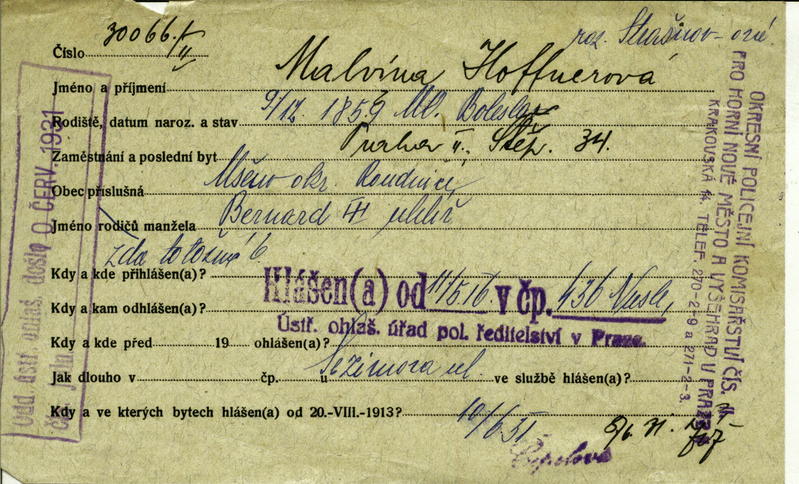 Číslo 30066/II
roz.
Jméno a příjmení Malvína Hoffnerová
Rodiště, datum naroz. a stav 9/12. 1859 Ml. Boleslav
Zaměstnání a poslední byt Praha II. Štěp. 34.
Obec příslušná Mšeno okr. Roudnice
Jméno rodičů manžela Bernard uhlíř
zda totožná
Kdy a kde přihlášen(a)?
Hlášen(a) od 11/5 16 v čp. 436 Nusle,
Kdy a kam odhlášen(a)?
Ústř. ohlaš. úřad pol. ředitelství v Praze.
Kdy a kde před 19 ohlášen(a)?
Jak dlouho v čp. u Sezimova ul. ve službě hlášen(a)?
Kdy a ve kterých bytech hlášen(a) od 20.-VIII.-1913? 10/6 31
9/6. 31.
OKRESNÍ POLICEJNÍ KOMISAŘSTVÍ ČÍS.
PRO HORNÍ NOVÉ MĚSTO A VYŠEHRAD V PRAZE
KRAKOVSKÁ 14 TELEF. 270-2-9 a 271-2-3.
Odd. ústř. ohlaš. došlo 9. ČERV. 1931
Čís. jedn.